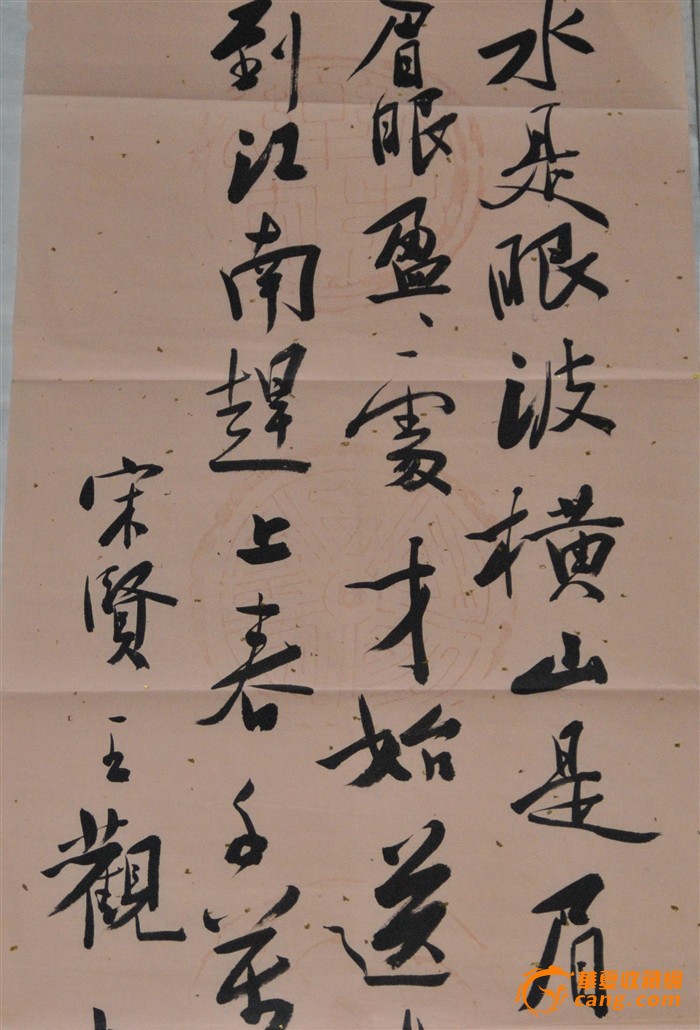 水是眼波橫山是眉
眉眼盈、處才始送
到江南趕上春千萬
宋賢王觀
華夏收藏網
cang.com